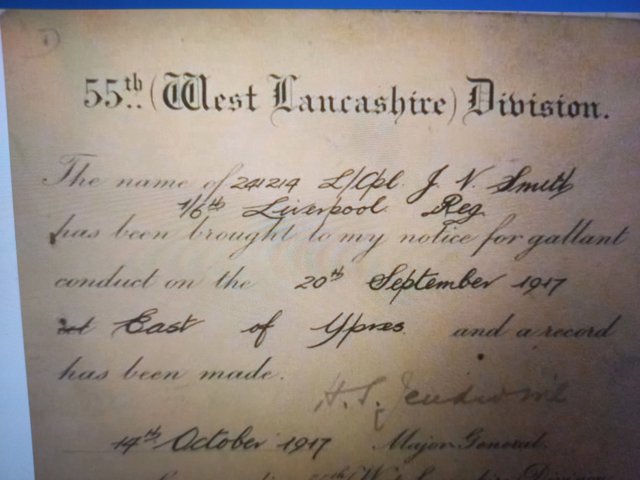 55th (West Lancashire) Division.
The name of 241214 L/Cpl. J. N. Smith
1/6th Liverpool Reg
has been brought to my notice for gallant
conduct on the 20th September 1917
East of Ypres and a record
has been made.
H. S. Jeudwine
14th October 1917 Major General